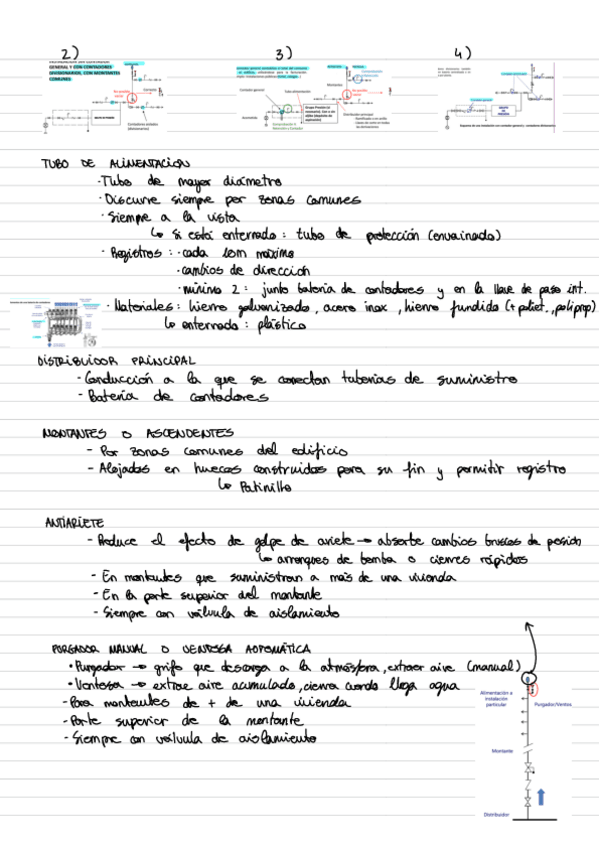 2)
3)
4)
GENERAL Y CON CONTADORES
DIVISIONARIOS, CON MONTANTES
COMUNES
TUBO DE ALIMENTACION
· Tubo de mayor diámetro
· Discurre siempre por zonas comunes
· Siempre a la vista
↳ Si está enterrado: tubo de protección (envainado)
· Registros: · cada 15m máximo
· cambios de dirección
· mínimo 2: junto batería de contadores y en la llave de paso int.
· Materiales: hierro galvanizado, acero inox, hierro fundido (+ poliet., poliprop)
↳ enterrado: plástico
DISTRIBUIDOR PRINCIPAL
- Conducción a la que se conectan tuberías de suministro
- Batería de contadores
MONTANTES O ASCENDENTES
- Por zonas comunes del edificio
- Alojados en huecos construidos para su fin y permitir registro
↳ Patinillo
ANTIARIETE
- Reduce el efecto de golpe de ariete → absorbe cambios bruscos de presión
↳ arranques de bomba o cierres rápidos
- En montantes que suministran a más de una vivienda
- En la parte superior del montante
- Siempre con válvula de aislamiento
PURGADOR MANUAL O VENTOSA AUTOMÁTICA
• Purgador → grifo que descarga a la atmósfera, extraer aire (manual)
• Ventosa → extrae aire acumulado, cierra cuando llega agua
- Para montantes de + de una vivienda
- Parte superior de la montante
- Siempre con válvula de aislamiento
Alimentación a
instalación
particular
Purgador/Ventos
Montante
Distribuidor